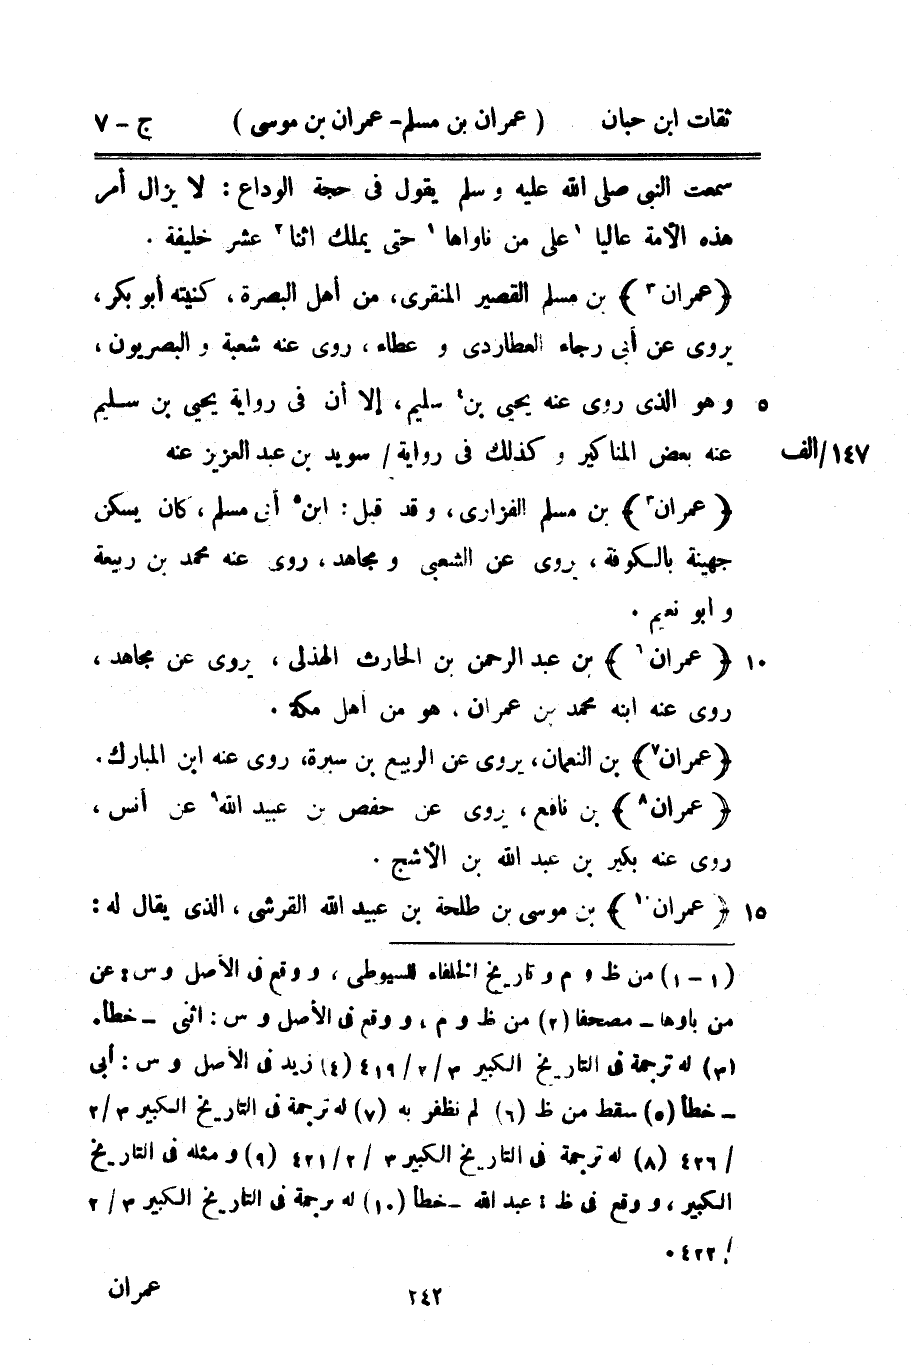 ثقات ابن حبان ( عمران بن مسلم - عمران بن موسى ) ج - ٧
سمعت النبى صلى الله عليه و سلم يقول فى حجة الوداع : لا يزال أمر
هذه الأمة عاليا ١على من ناواها ١ حتى يملك اثنا٢ عشر خليفة .
﴿عمران٣﴾ بن مسلم القصير المنقرى، من أهل البصرة، كنيته أبو بكر،
يروى عن أبى رجاء العطاردى و عطاء، روى عنه شعبة و البصريون،
٥ و هو الذى روى عنه يحيى بن٤ سليم، إلا أن فى رواية يحيى بن سليم
١٤٧/الف عنه بعض المناكير و كذلك فى رواية / سويد بن عبد العزيز عنه
﴿عمران٣﴾ بن مسلم الفزارى، و قد قيل : ابن٥ أبى مسلم، كان يسكن
جهينة بالكوفة، يروى عن الشعبى و مجاهد، روى عنه محمد بن ربيعة
و ابو نعيم .
١٠ ﴿عمران٦﴾ بن عبد الرحمن بن الحارث الهذلى، يروى عن مجاهد،
روى عنه ابنه محمد بن عمران، هو من أهل مكة .
﴿عمران٧﴾ بن النعمان، يروى عن الربيع بن سبرة، روى عنه ابن المبارك.
﴿عمران٨﴾ بن نافع، يروى عن حفص بن عبيد الله٩ عن أنس،
روى عنه بكير بن عبد الله بن الأشج .
١٥ ﴿عمران١٠﴾ بن موسى بن طلحة بن عبيد الله القرشى، الذى يقال له :
(١ - ١) من ظ و م و تاريخ الخلفاء للسيوطى، و وقع فى الأصل و س : عن
من باوها - مصحفا (٢) من ظ و م، و وقع فى الأصل و س : اثنى - خطأ.
(٣) له ترجمة فى التاريخ الكبير ٣/ ٢/ ٤١٩ (٤) زيد فى الأصل و س : أبى
- خطأ (٥) سقط من ظ (٦) لم نظفر به (٧) له ترجمة فى التاريخ الكبير ٣/ ٢
/ ٤٢٦ (٨) له ترجمة فى التاريخ الكبير ٣ / ٢/ ٤٢١ (٩) و مثله فى التاريخ
الكبير، و وقع فى ظ : عبد الله - خطأ (١٠) له ترجمة فى التاريخ الكبير ٣/ ٢
/ ٤٢٢.
٢٤٢ عمران